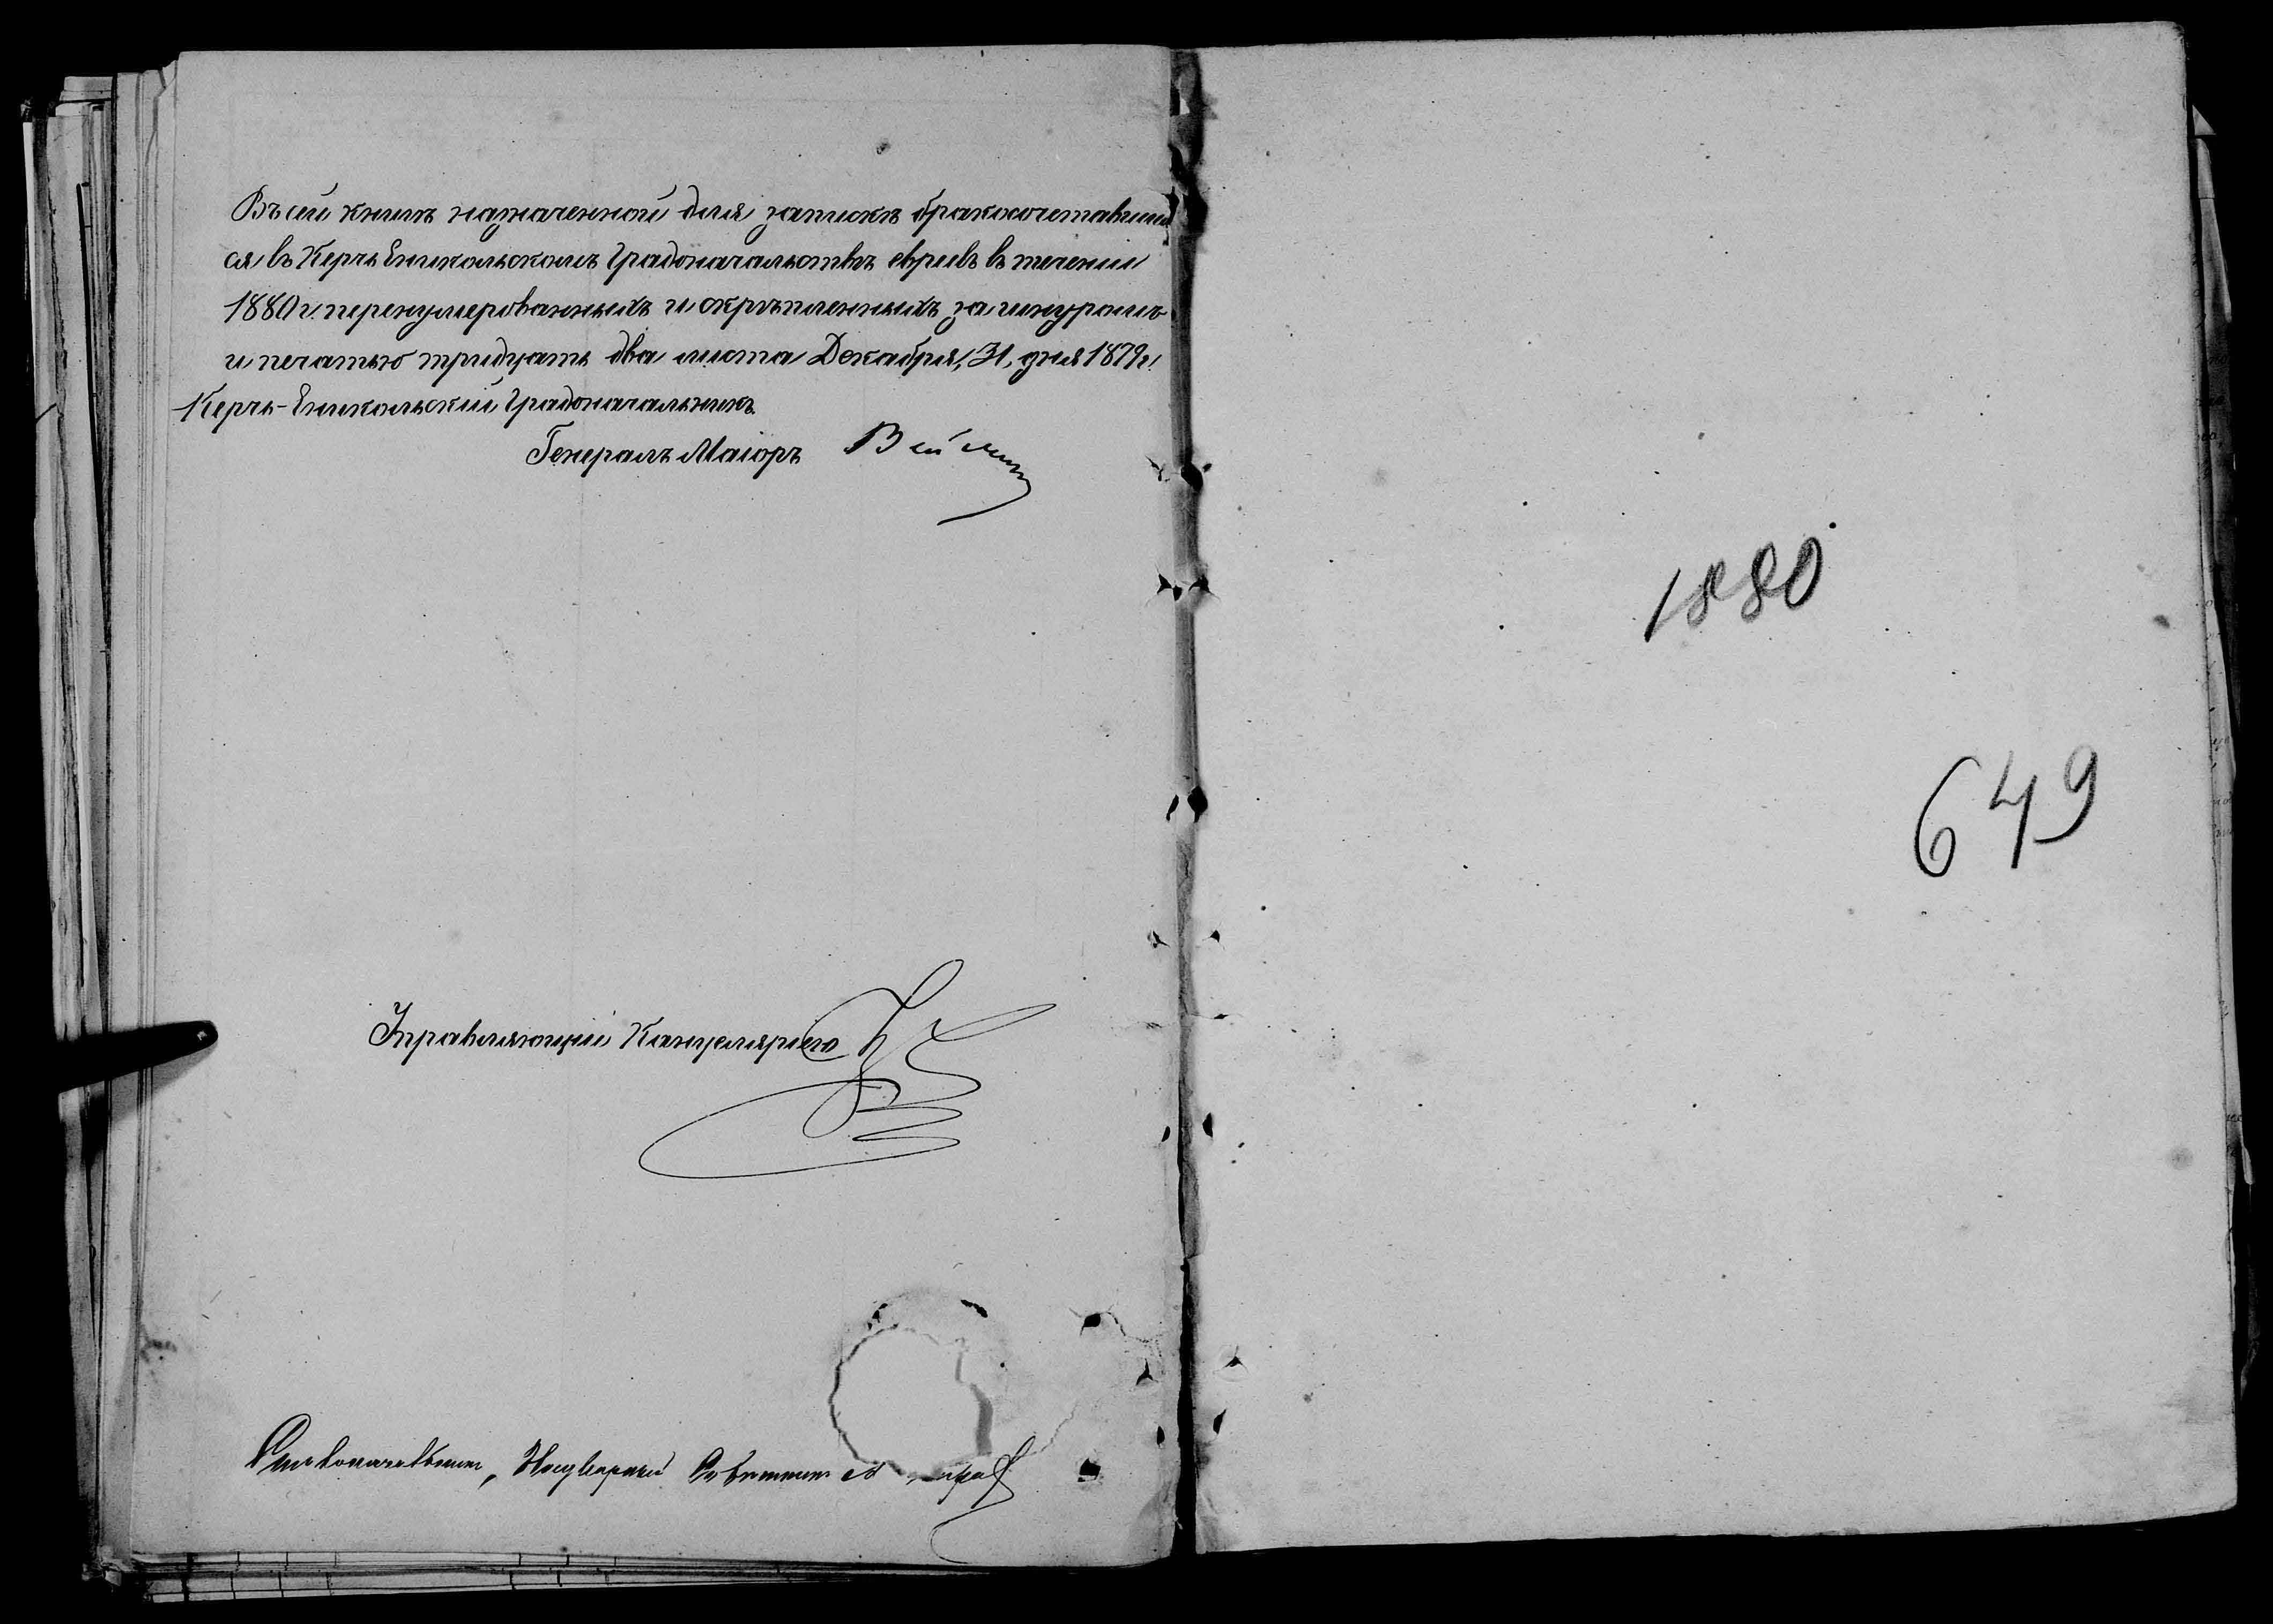 Въ сей книгѣ назначенной для записки бракосочетавших
ся въ Керчь Еникольскомъ Градоначальствѣ евреевъ въ теченіи
1880 г. перенумерованныхъ и скрѣпленныхъ за шнуромъ
и печатью тридцать два листа Декабря, 31, дня 1879 г.
Керчь-Еникольскій Градоначальникъ
Генералъ Маіоръ Вейс
Управляющій Канцеляріею
Дѣлопроизводитель, Надворный Совѣтникъ
1880
649